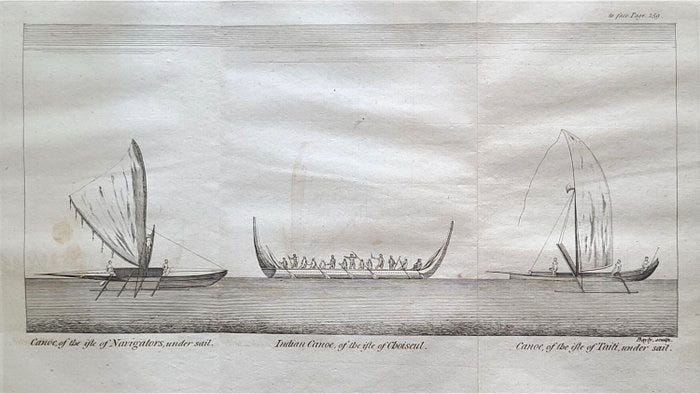 to face Page. 259
Bayly, sculp.
Canoe, of the isle of Navigators, under sail.
Indian Canoe, of the isle of Choiseul.
Canoe, of the isle of Taiti, under sail.